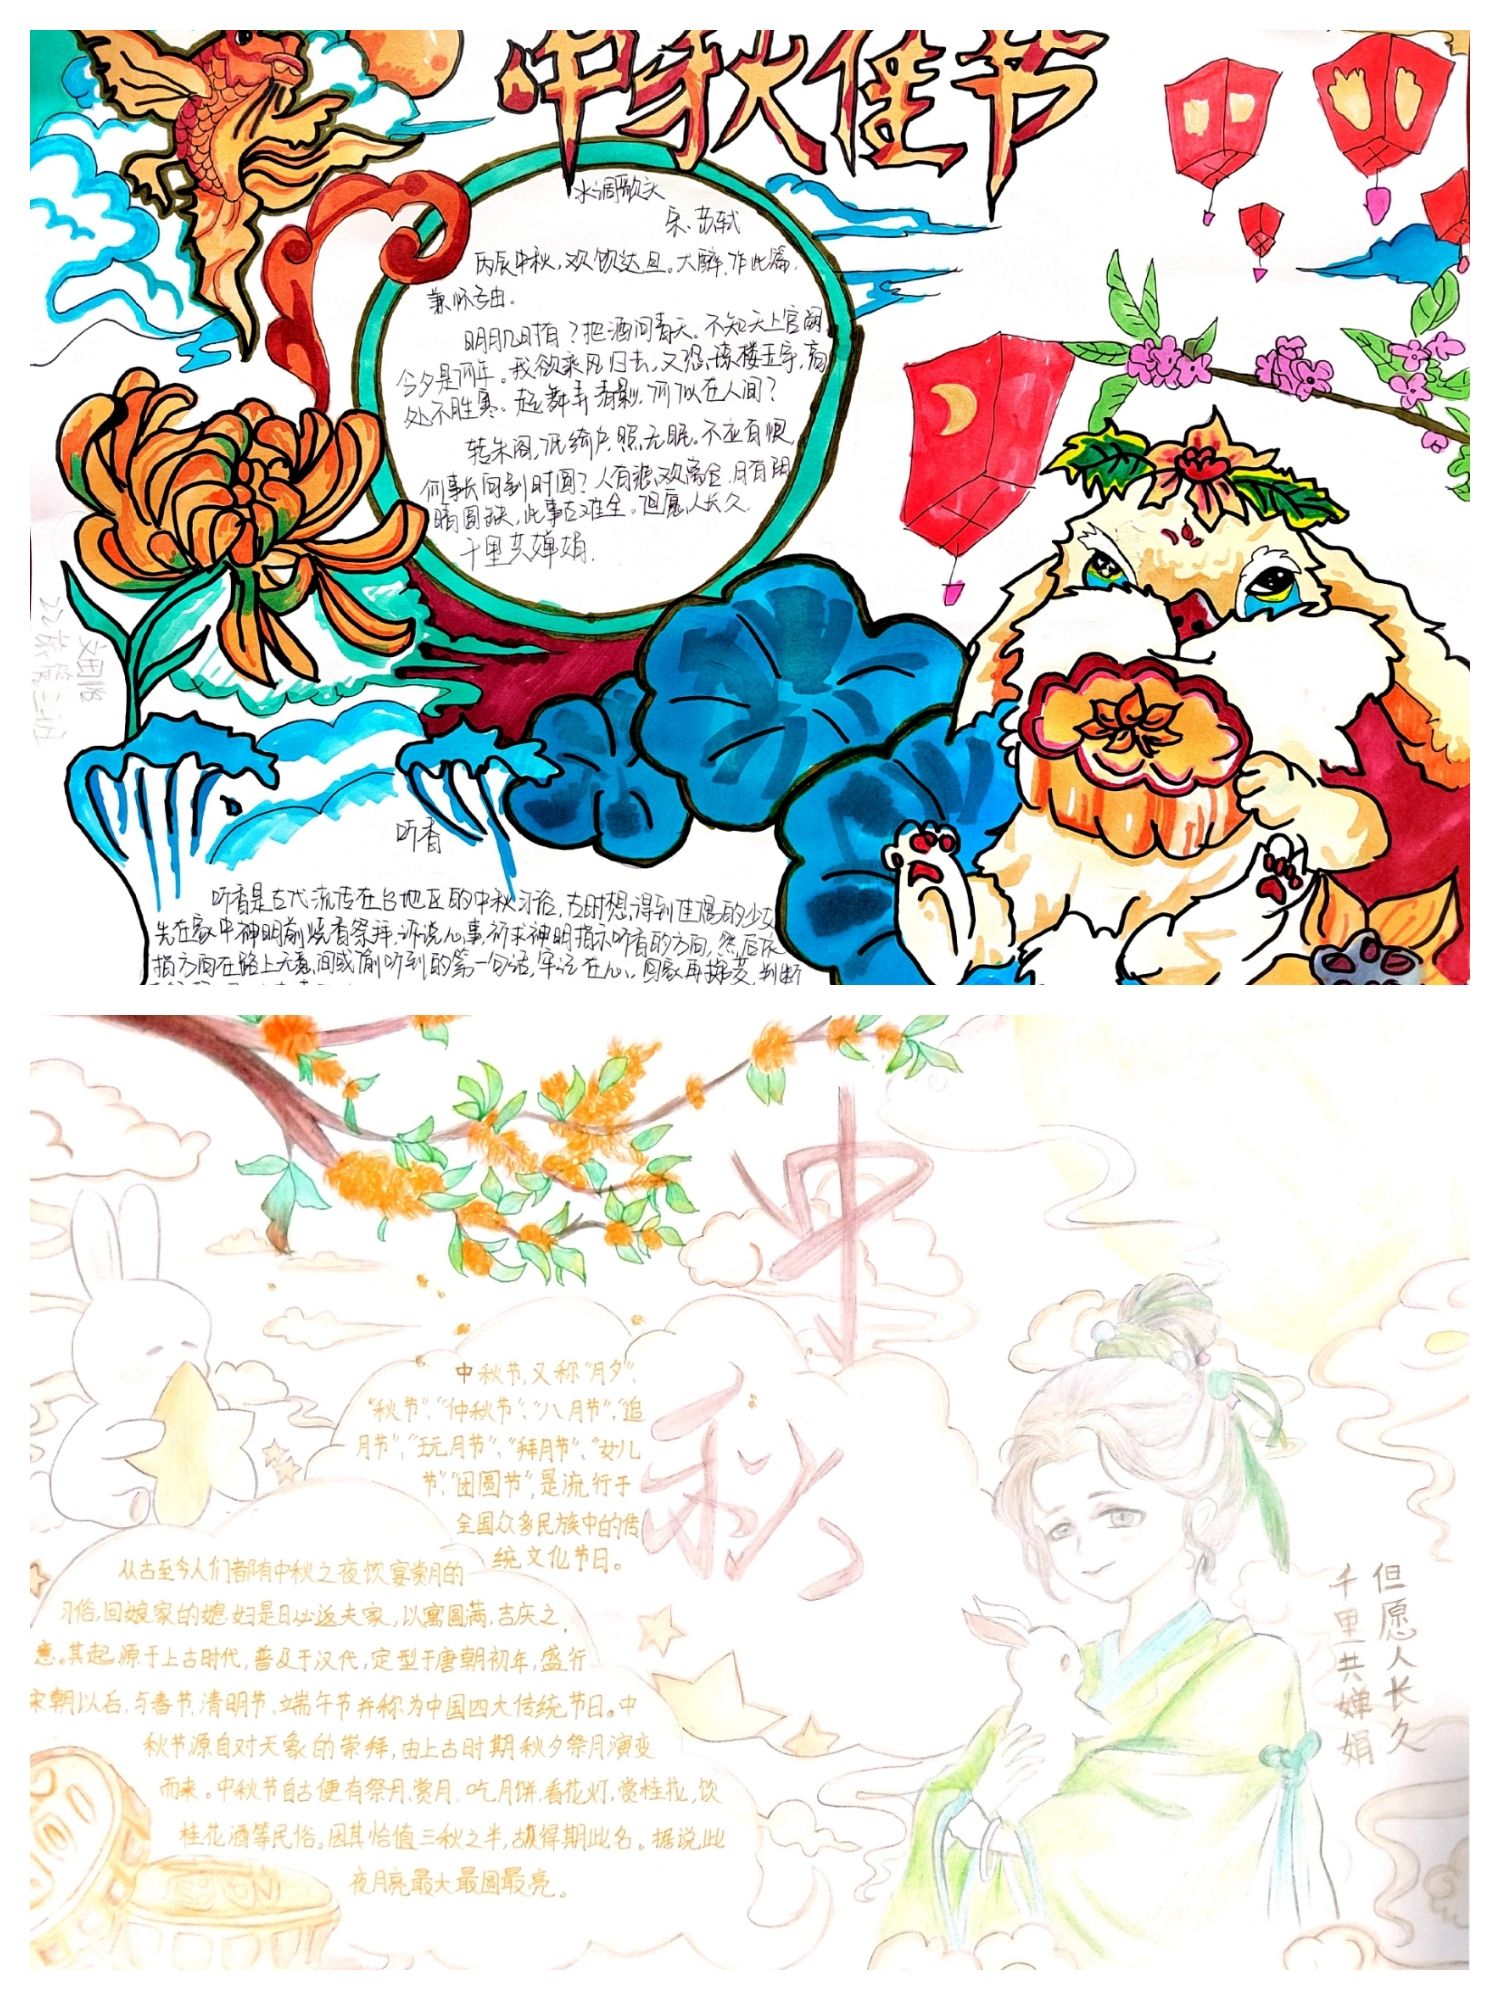 中秋佳节
水调歌头
宋·苏轼
丙辰中秋，欢饮达旦。大醉，作此篇，
兼怀子由。
明月几时有？把酒问青天。不知天上宫阙，
今夕是何年。我欲乘风归去，又恐琼楼玉宇，高
处不胜寒。起舞弄清影，何似在人间？
转朱阁，低绮户，照无眠。不应有恨，
何事长向别时圆？人有悲欢离合，月有阴
晴圆缺，此事古难全。但愿人长久，
千里共婵娟.
听香
听香是古代流传在台地区的中秋习俗，古时想得到佳偶的少女
先在家中神明前烧香祭拜，诉说心事，祈求神明指示听香的方向，然后依
指方向在路上无意间或偷听到的第一句话，牢记在心，回家再掷茭，判断
中秋
中秋节，又称“月夕”、
“秋节”、“仲秋节”、“八月节”、“追
月节”、“玩月节”、“拜月节”、“女儿
节”、“团圆节”，是流行于
全国众多民族中的传
统文化节日。
从古至今人们都有中秋之夜饮宴赏月的
习俗，回娘家的媳妇是日必返夫家，以寓圆满，吉庆之
意。其起源于上古时代，普及于汉代，定型于唐朝初年，盛行
宋朝以后，与春节、清明节、端午节并称为中国四大传统节日。中
秋节源自对天象的崇拜，由上古时期秋夕祭月演变
而来。中秋节自古便有祭月、赏月、吃月饼、看花灯、赏桂花，饮
桂花酒等民俗。因其恰值三秋之半，故得期此名。据说此
夜月亮最大最圆最亮。
但愿人长久
千里共婵娟